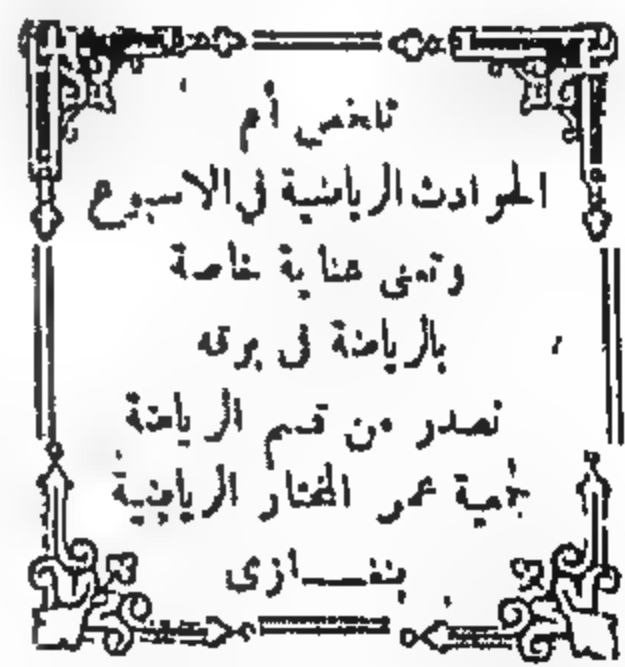 تلخص أم
الحوادث الرياضية في الاسبوع
وتعنى عناية خاصة
بالرياضة في برقه
تصدر من قسم الرياضة
جمعية عمر المختار الرياضية
بنغـــازى